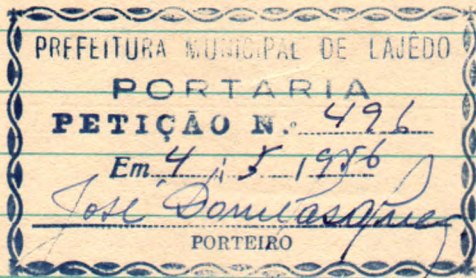 PREFEITURA MUNICIPAL DE LAJÊDO
PORTARIA
PETIÇÃO N.º 496
Em 4 / 5 / 1956
José
PORTEIRO